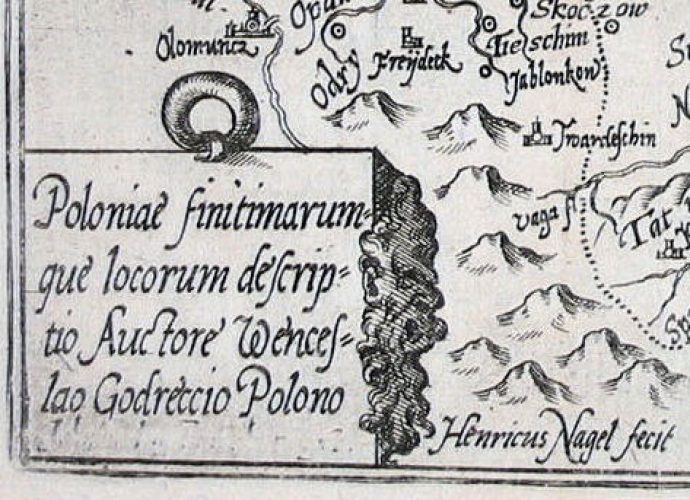 Skoczow
Olomuncz
Odry
Freijdeck
Tieschim
Jablonkow
Twardeschin
vaga fl
Tat
Poloniae finitimarum-
que locorum descrip-
tio Auctore Wences-
lao Godreccio Polono
Henricus Nagel fecit